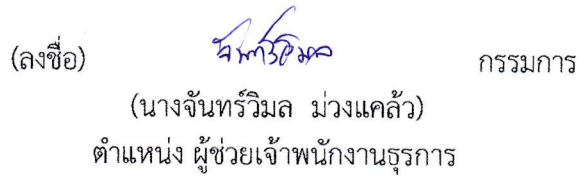 (ลงชื่อ) จันทร์วิมล กรรมการ
(นางจันทร์วิมล ม่วงแคล้ว)
ตำแหน่ง ผู้ช่วยเจ้าพนักงานธุรการ